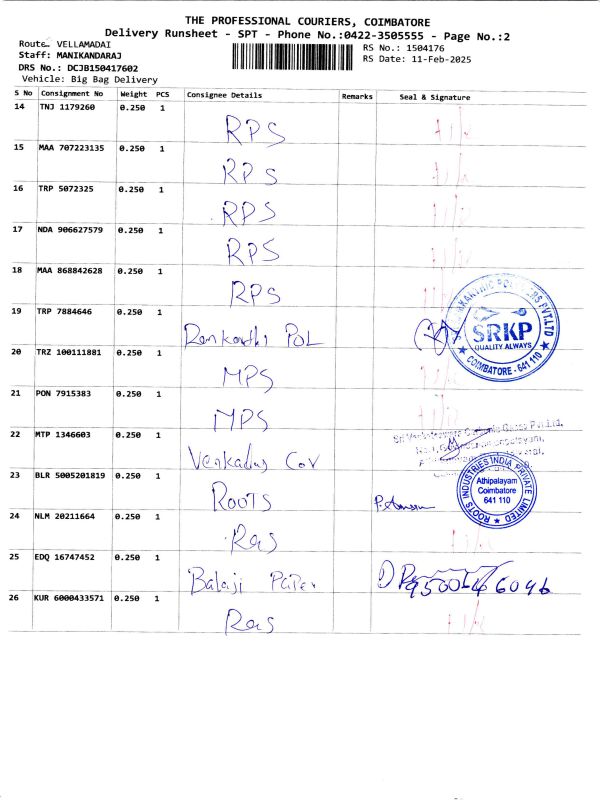 THE PROFESSIONAL COURIERS, COIMBATORE
Delivery Runsheet - SPT - Phone No.:0422-3505555 - Page No.:2
Route: VELLAMADAI
RS No.: 1504176
Staff: MANIKANDARAJ
RS Date: 11-Feb-2025
DRS No.: DCJB150417602
Vehicle: Big Bag Delivery
S No Consignment No Weight PCS Consignee Details Remarks Seal & Signature
14 TNJ 1179260 0.250 1
RPS
15 MAA 707223135 0.250 1
RPS
16 TRP 5072325 0.250 1
RPS
17 NDA 906627579 0.250 1
RPS
18 MAA 868842628 0.250 1
RPS
19 TRP 7884646 0.250 1
POL
SRKP
QUALITY ALWAYS
COIMBATORE - 641 110
20 TRZ 100111881 0.250 1
MPS
21 PON 7915383 0.250 1
MPS
22 MTP 1346603 0.250 1
23 BLR 5005201819 0.250 1
ROOTS
ROOTS INDUSTRIES INDIA PRIVATE LIMITED
Athipalayam
Coimbatore
641 110
24 NLM 20211664 0.250 1
25 EDQ 16747452 0.250 1
Balaji Paper
26 KUR 6000433571 0.250 1